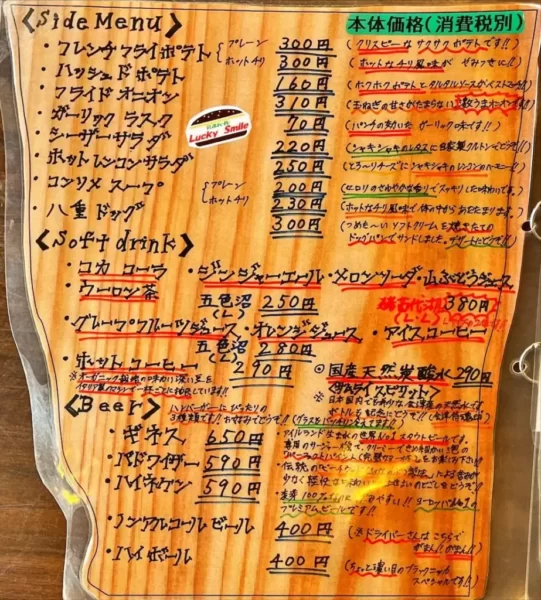 <Side Menu> 本体価格(消費税別)
・フレンチフライポテト {・プレーン 300円 (クリスピーなサクサクポテトです!!)
・ホットチリ 300円 (ホットなチリ風味が ぜみつきに!!)
・ハッシュドポテト 160円 (ホクホクポテトとタルタルソースがベストマッチ!!)
・フライドオニオン 310円 (玉ねぎの甘さがたまらない)
・ガーリックラスク 70円 (パンチの効いた ガーリック味です!!)
・シーザーサラダ 220円 (シャキシャキのレタスに自家製クルトンをどうぞ!!)
・ホットレンコンサラダ 250円 (とろ〜りチーズにシャキシャキのレンコンのハーモニー!!)
・コンソメスープ {・プレーン 200円 (セロリのさわやかな香りでスッキリした味わいです。)
・ホットチリ 230円 (ホットなチリ風味で体の中からあたたまります。)
・八重ドッグ 300円 (つめた〜いソフトクリームを焼きたての
ドッグパンでサンドしました。デザートにどうぞ!!)
Lucky Smile
<Soft drink>
・コカコーラ ・ジンジャーエール ・メロンソーダ ・山ぶどうジュース
・ウーロン茶 五色沼(L) 250円 380円
・グレープフルーツジュース ・オレンジジュース ・アイスコーヒー
五色沼(L) 280円
・ホットコーヒー 290円 ◎国産天然炭酸水 290円
<サムライスピリット>
<Beer> ハンバーガーにぴったりの
3種類です!! お好みでどうぞ!! (グラスもバッチリ冷えてます!!)
・ギネス 650円
・バドワイザー 590円
・ハイネケン 590円
麦芽100%
プレミアムビールです!!
・ノンアルコールビール 400円 (※ドライバーさんはこちらで
がまん!!がまん!!)
・ハイボール 400円 (ちょっと濃い目のブラックニッカ
スペシャルです!!)